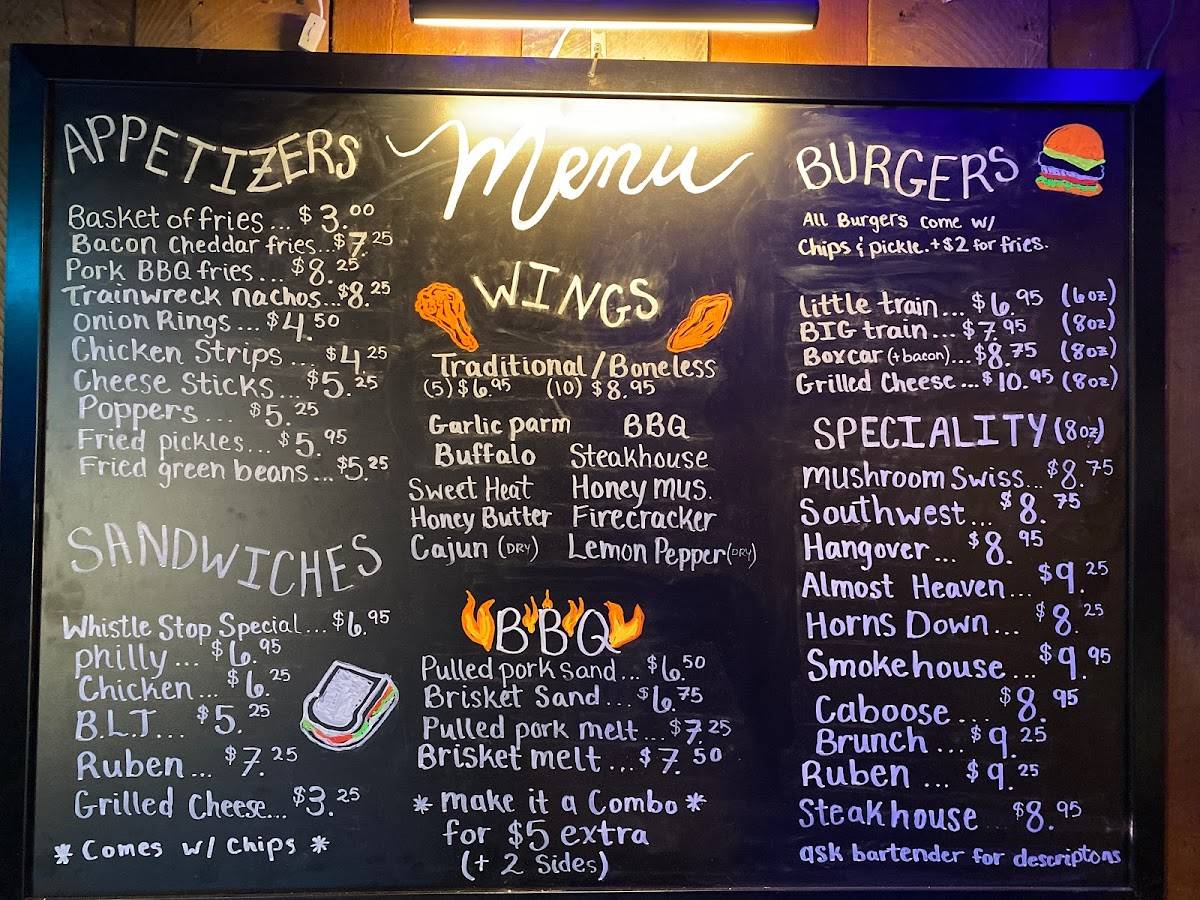 APPETIZERS
Basket of fries... $3.00
Bacon Cheddar fries...$7.25
Pork BBQ fries... $8.25
Trainwreck nachos...$8.25
Onion Rings... $4.50
Chicken Strips... $4.25
Cheese Sticks... $5.25
Poppers... $5.25
Fried pickles... $5.95
Fried green beans...$5.25
SANDWICHES
Whistle Stop Special... $6.95
philly... $6.95
Chicken... $6.25
B.L.T... $5.25
Ruben... $7.25
Grilled Cheese... $3.25
* Comes w/ Chips *
Menu
WINGS
Traditional/Boneless
(5) $6.95 (10) $8.95
Garlic parm BBQ
Buffalo Steakhouse
Sweet Heat Honey Mus.
Honey Butter Firecracker
Cajun (DRY) Lemon Pepper (DRY)
BBQ
Pulled pork sand... $6.50
Brisket Sand... $6.75
Pulled pork melt... $7.25
Brisket melt... $7.50
* make it a Combo *
for $5 extra
(+ 2 Sides)
BURGERS
All Burgers come w/
Chips & pickle. +$2 for fries.
little train... $6.95 (6oz)
BIG train... $7.95 (8oz)
Boxcar (+bacon)... $8.75 (8oz)
Grilled Cheese... $10.95 (8oz)
SPECIALITY (8oz)
Mushroom Swiss... $8.75
Southwest... $8.75
Hangover... $8.95
Almost Heaven... $9.25
Horns Down... $8.25
Smokehouse... $9.95
Caboose... $8.95
Brunch... $9.25
Ruben... $9.25
Steakhouse... $8.95
ask bartender for descriptons